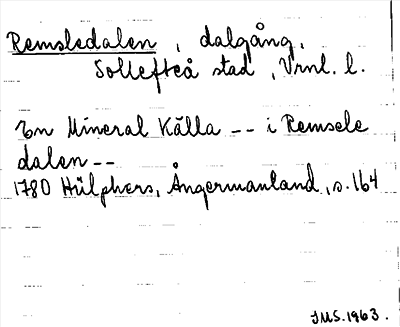 Remsledalen, dalgång,
Sollefteå stad, Vrnl. l.
En Mineral Källa -- i Remsele
dalen --
1780 Hülphers, Ångermanland, s. 164
JMS. 1963.